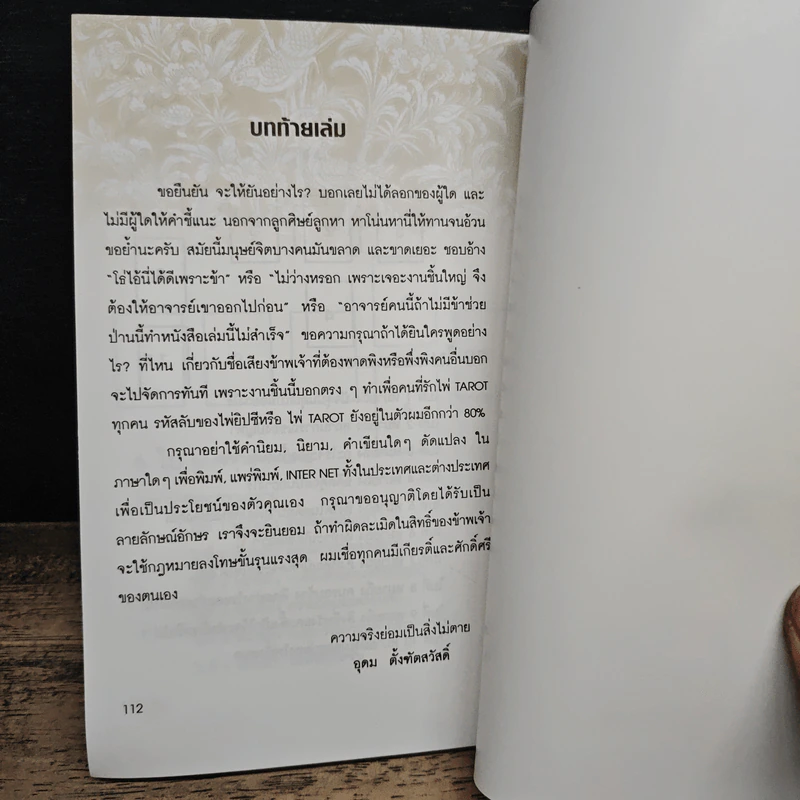 บทท้ายเล่ม
ขอยืนยัน จะให้ยันอย่างไร? บอกเลยไม่ได้ลอกของผู้ใด และ
ไม่มีผู้ใดให้คำชี้แนะ นอกจากลูกศิษย์ลูกหา หาโน่นหานี่ให้ทานจนอ้วน
ขอย้ำนะครับ สมัยนี้มนุษย์จิตบางคนมันขลาด และขาดเยอะ ชอบอ้าง
"โธ่ไอ้นี่ได้ดีเพราะข้า" หรือ "ไม่ว่างหรอก เพราะเจอะงานชิ้นใหญ่ จึง
ต้องให้อาจารย์เขาออกไปก่อน" หรือ "อาจารย์คนนี้ถ้าไม่มีข้าช่วย
ป่านนี้ทำหนังสือเล่มนี้ไม่สำเร็จ" ขอความกรุณาถ้าได้ยินใครพูดอย่าง
ไร? ที่ไหน เกี่ยวกับชื่อเสียงข้าพเจ้าที่ต้องพาดพิงหรือพึ่งพิงคนอื่นบอก
จะไปจัดการทันที เพราะงานชิ้นนี้บอกตรง ๆ ทำเพื่อคนที่รักไพ่ TAROT
ทุกคน รหัสลับของไพ่ยิปซีหรือ ไพ่ TAROT ยังอยู่ในตัวผมอีกกว่า 80%
กรุณาอย่าใช้คำนิยม, นิยาม, คำเขียนใดๆ ดัดแปลง ใน
ภาษาใดๆ เพื่อพิมพ์, แพร่พิมพ์, INTER NET ทั้งในประเทศและต่างประเทศ
เพื่อเป็นประโยชน์ของตัวคุณเอง กรุณาขออนุญาติโดยได้รับเป็น
ลายลักษณ์อักษร เราจึงจะยินยอม ถ้าทำผิดละเมิดในสิทธิ์ของข้าพเจ้า
จะใช้กฎหมายลงโทษขั้นรุนแรงสุด ผมเชื่อทุกคนมีเกียรติ์และศักดิ์ศรี
ของตนเอง
ความจริงย่อมเป็นสิ่งไม่ตาย
อุดม ตั้งฑัตสวัสดิ์
112